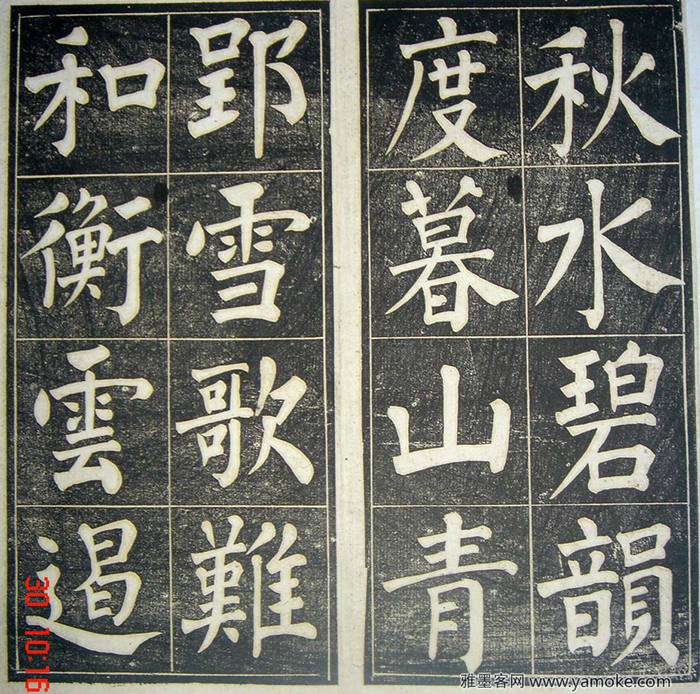 秋水碧韻
度暮山青
郢雪歌難
和衡雲遏
30 10:16
雅墨客网 www.yamoke.com